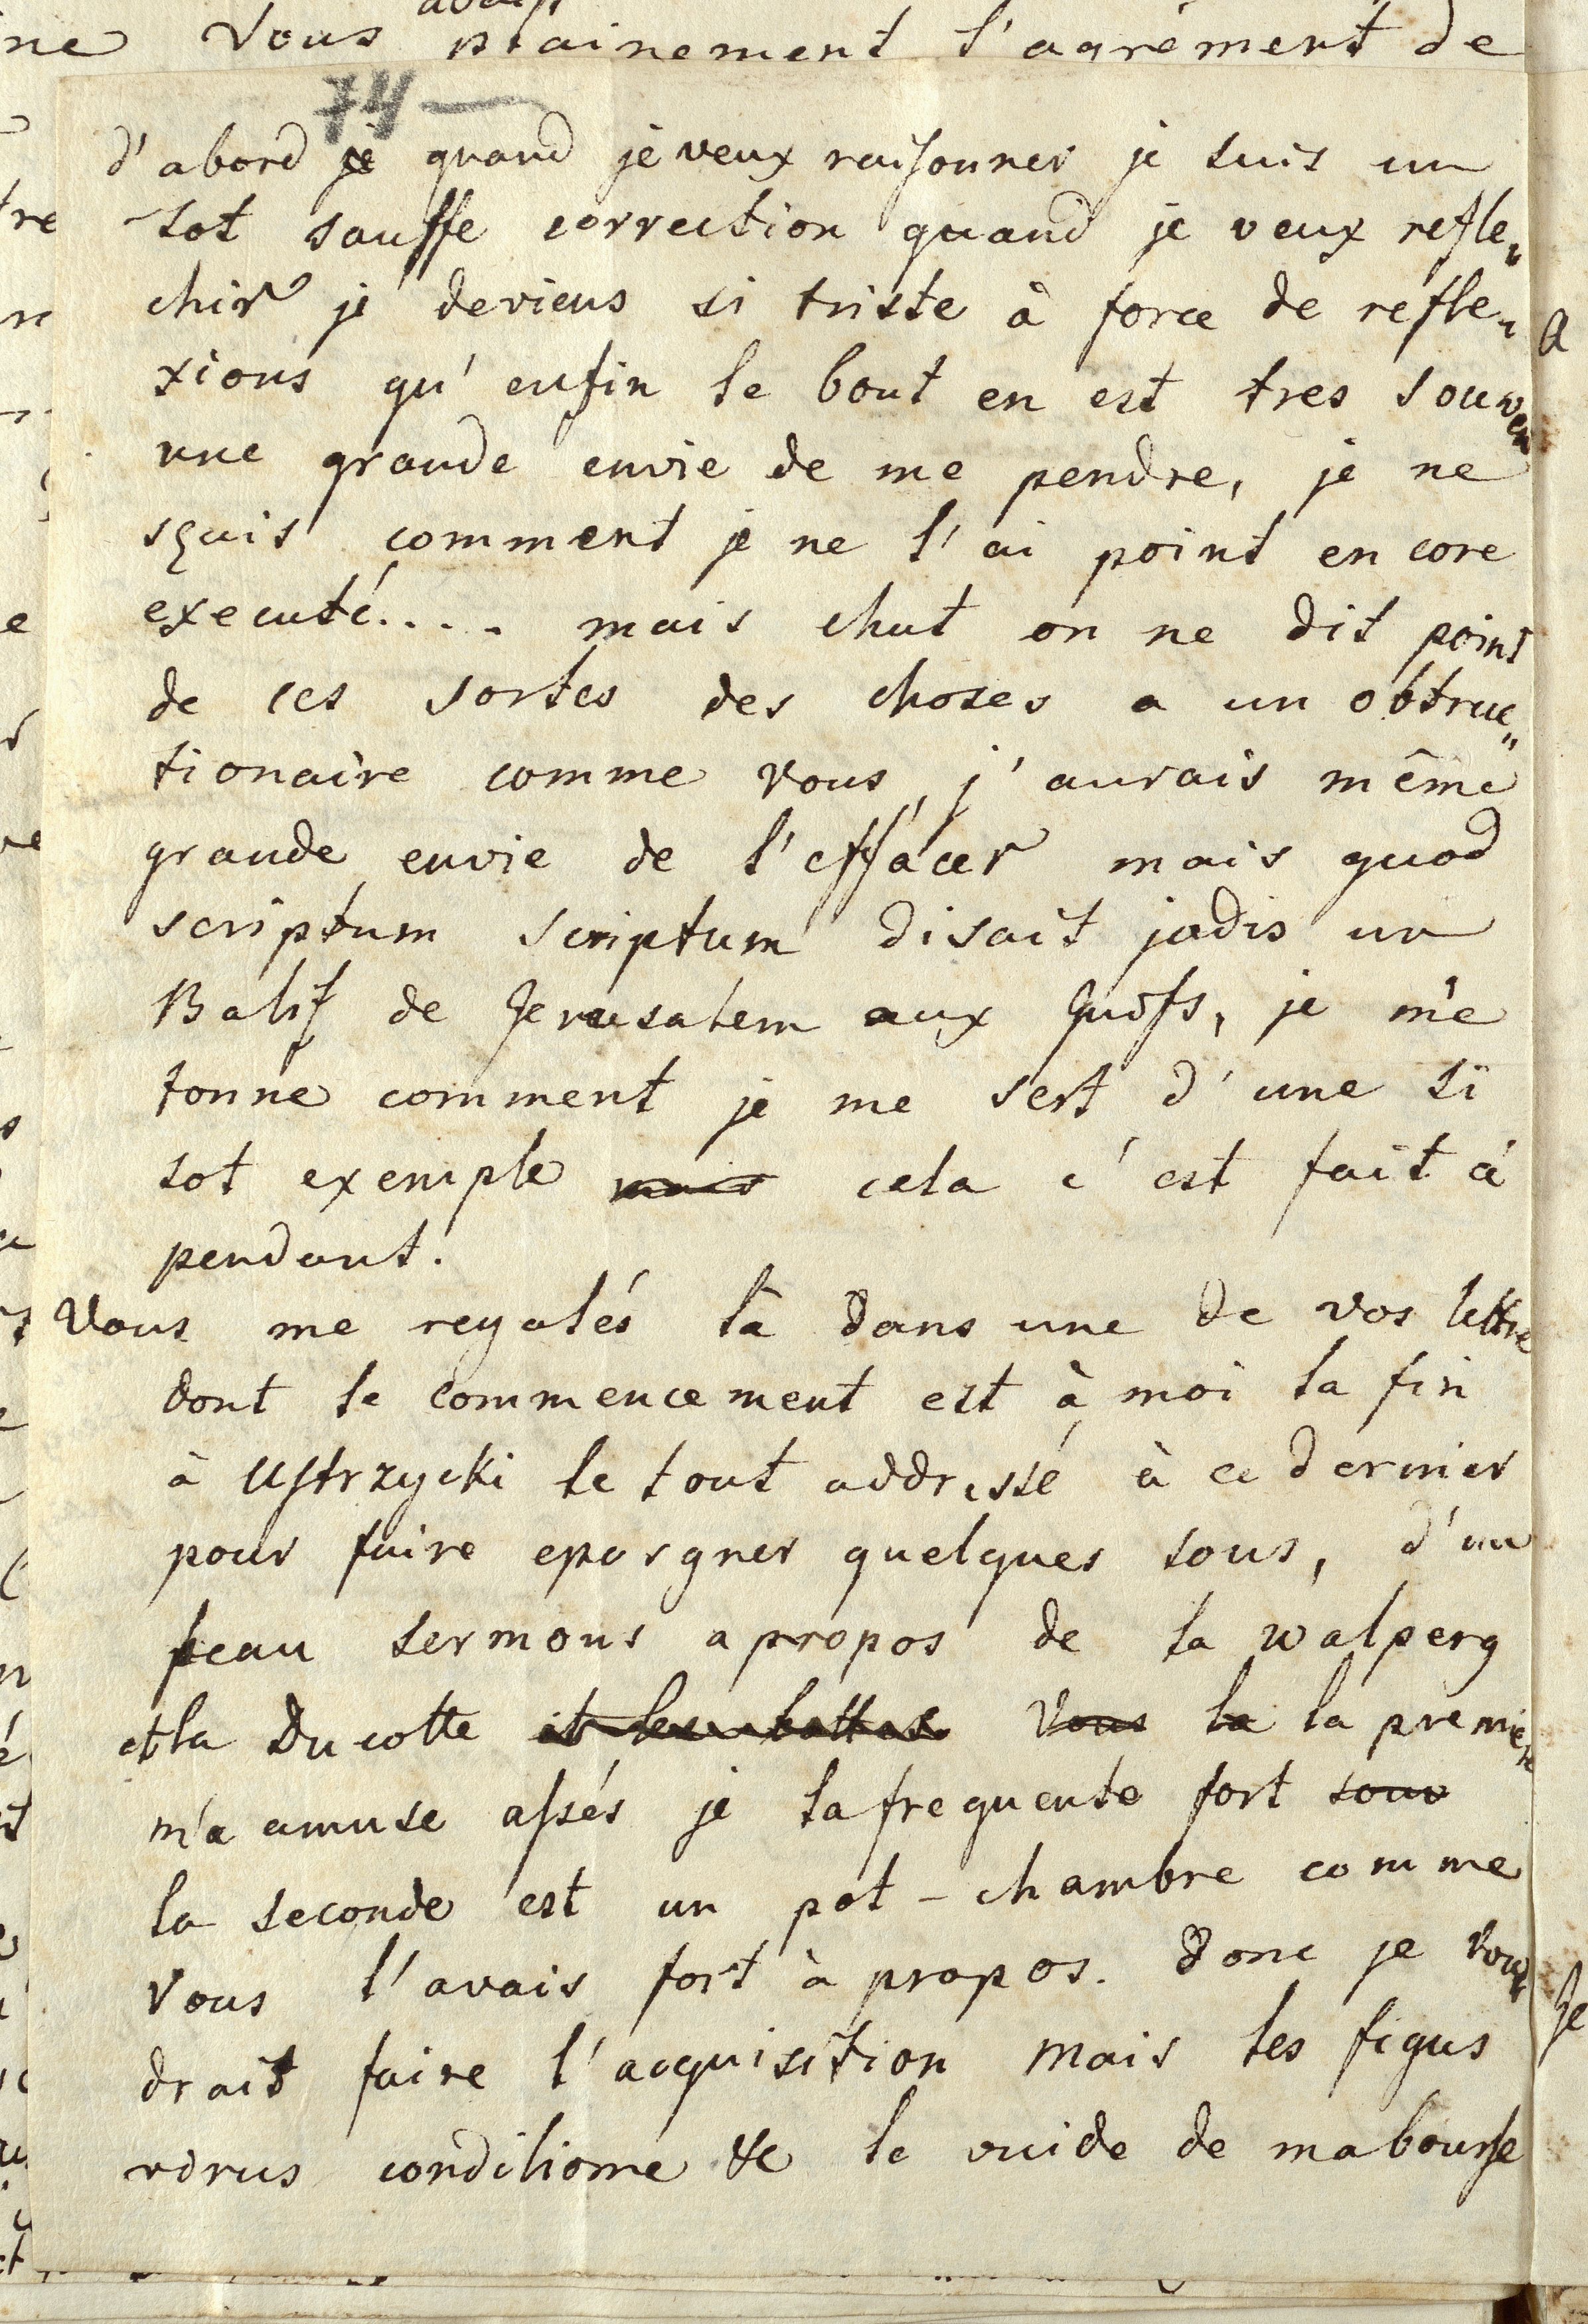 ne vous plainement l'agrément de
74
d'abord je quand je veux raisonner je suis un
sot sauffe correction quand je veux refle„
chir je deviens si triste à force de refle„
xions qu'enfin le bout en est tres souvent
une grande envie de me pendre, je ne
sçais comment je ne l'ai point encore
executé.... mais chut on ne dit point
de ces sortes des choses a un obtruc„
tionaire comme vous, j'aurais même
grande envie de l'effácer mais quod
scriptum scriptum disait jadis un
Balif de Jerusalem aux Juifs, je m'e
tonne comment je me sert d'une si
sot exemple mais cela c'est fait cé
pendant.
Vous me regalés là dans une de vos lettre
dont le commencement est à moi la fin
à Ustrzycki le tout addressé à ce dernier
pour faire epargner quelques sous, d'un
beau sermons apropos de la walperg
et la Ducotte Vous la la premiere
m'a amuse assés je la frequente fort souv
la seconde est un pot-chambre comme
vous l'avais fort à propos. Donc je vou
drait faire l'acquisition mais les figus
conditione & le vuide de ma bourse